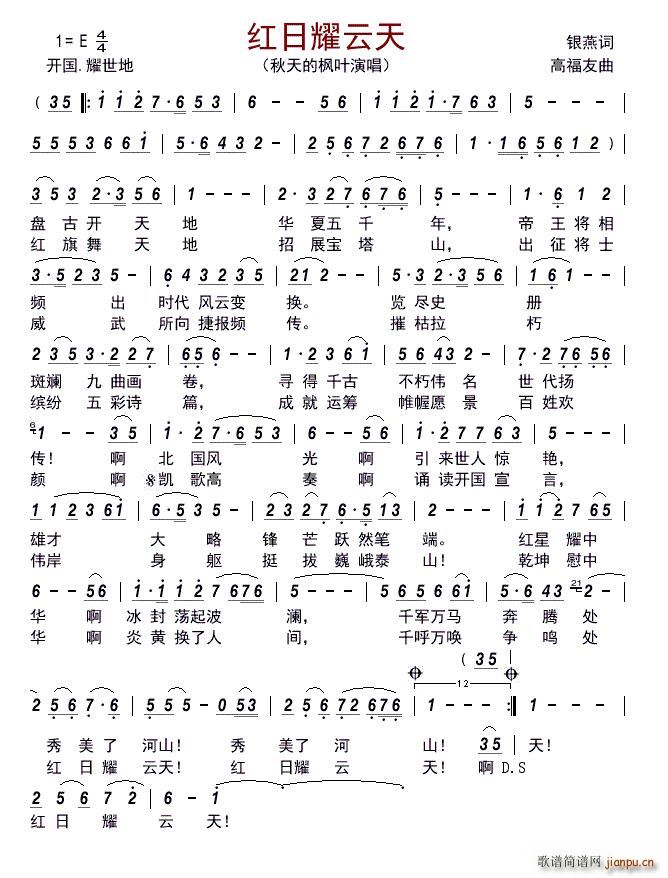 红日耀云天
1= E 4/4
银燕词
开国.耀世地
（秋天的枫叶演唱）
高福友曲
( 3 5 ‖: 1 1 2 7·6 5 3 | 6 - - 5 6 | 1 1 2 3 1·7 6 3 | 5 - - - |
5 5 5 3 6 6 1 | 5·6 4 3 2 - | 2 5 6 7 2 6 7 6 | 1 · 1 6 5 6 1 2 )
3 5 3 2·3 5 6 | 1 - - - | 2·3 2 7 6 7 6 | 5 - - - | 1·6 2 1 2 |
盘古开 天 地 华 夏五 千 年， 帝 王将相
红旗舞 天 地 招 展宝 塔 山， 出 征将士
3·5 2 3 5 - | 6 4 3 2 3 2 0 | 2 1 2 - - | 5 3 2·3 5 6 | 1 6 1 - |
频 出 时代 风云变 换。 览 尽史 册
威 武 所向 捷报频 传。 摧 枯拉 朽
2 3 5 3·2 2 7 | 6 5 6 - | 1·2 3 6 1 | 5 6 4 3 2 - | 7·2 7 6 5 6 |
斑斓 九 曲画 卷， 寻 得 千古 不朽伟 名 世 代扬
缤纷 五 彩诗 篇， 成 就 运筹 帷幄愿 景 百 姓欢
6 1 - - 3 5 | 1·2 7·6 5 3 | 6 - - 5 6 | 1·2 7 7 6 3 | 5 - - - |
传! 啊 北 国风 光 啊 引 来世人 惊 艳，
颜! 啊 𝄋凯 歌高 奏 啊 诵 读开国 宣 言，
1 1 2 3 6 1 | 6·5 3 5 - | 2·3 5 5 6 7 6 | 2 - - - | 3 3 5 6 5 6 |
雄才 大 略 锋 芒 跃 然笔 端。 红星 耀中
伟岸 身 躯 挺 拔 巍 峨泰 山! 乾坤 慰中
6 - - 5 6 | 1·1 1 2 7 6 7 6 | 5 - - - | 4 5 5 6 5 3 2 | 5·6 4 3 21 2 |
华 啊 冰 封 荡起波 澜， 千军万马 奔 腾 处
华 啊 炎 黄 换了人 间， 千呼万唤 争 鸣 处
( 3 5
12
2 5 6 7·6 | 5 - - - | 5 - - 0 5 3 | 2 5 6 7·2 7 6 7 6 | 1 - - - :‖ 1 - - - |
秀 美了 河山! 秀 美了 河 山! 3 5 | 天!
红 日耀 云天! 红 日耀 云 天! 啊 D.S
2 5 6 7 2 6 | 1 - - - | 1 - - 0 ‖
红日 耀 云 天!
歌谱简谱网
jianpu.cn